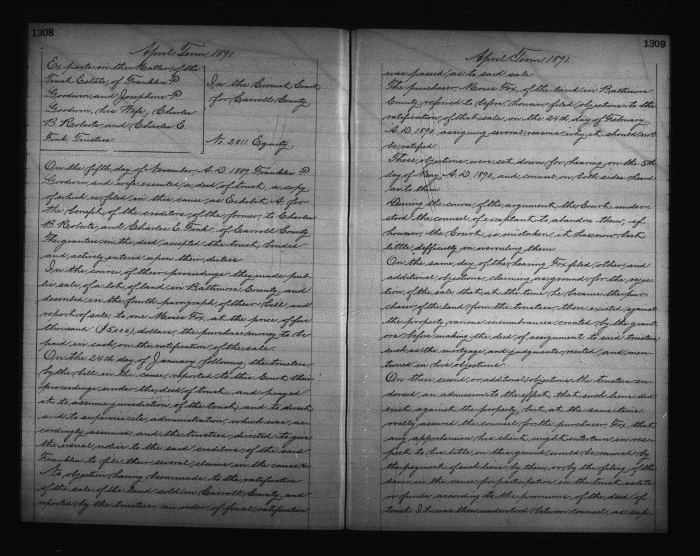 1308
April Term 1891
Ex parte in the Matter of the
Trust Estate of Franklin P.
Goodwin and Josephine P.
Goodwin, his Wife, Charles
B. Roberts and Charles E.
Fink Trustees
In the Circuit Court
for Carroll County
No 2811 Equity.
On the fifth day of November A.D. 1889 Franklin P.
Goodwin and wife executed a deed of trust, a copy
of which is filed in this cause, as Exhibit A, for
the benefit of the creditors of the former, to Charles
B. Roberts and Charles E. Fink, of Carroll County
The grantees in the deed accepted the trust, bonded
and actively entered upon their duties.
In the course of their proceedings they made pub-
lic sale of a lot of land in Baltimore County, and
described in the fourth paragraph of their bill, and
report of sale to one Moses Fox, at the price of five
thousand ($5,000) dollars, the purchase money to be
paid in cash on the ratification of the sale.
On the 24th day of January following the trustees
by the bill in the cause, reported to this Court their
proceedings under the deed of trust, and prayed
it to assume jurisdiction of the trust, and to direct
and to supervise its administration, which was ac-
cordingly assumed and the trustees directed to give
the usual notice to the said creditors of the said
Franklin to file their several claims in the cause &c
No objection having been made to the ratification
of the sale of the land sold in Carroll County, and
reported by the trustees, an order of final ratification
1309
April Term 1891
was passed as to said sale
The purchaser Moses Fox, of the land in Baltimore
County referred to before, however filed objections to the
ratification of that sale, on the 24th day of February
A.D. 1890, assigning several reasons why it should not
be ratified.
These objections were set down for hearing on the 5th
day of May, A.D. 1890, and counsel on both sides heard
as to them
During the course of the argument the Court under-
stood the counsel of exceptant to abandon them, if
however, the Court is mistaken, it has now but
little difficulty in overruling them
On the same day of the hearing Fox filed other and
additional objections, claiming as ground for the rejec-
tion of the sale, that at the time he became the pur-
chaser of the land from the trustees, there existed against
the property various incumbrances created by the grant-
ors before making the deed of assignment to said trustees
such as the mortgage, and judgments recited and men-
tioned in his objections.
On these second or additional objections the trustees en-
dorsed an admission to the effect, that such liens did
exist against the property, but at the same time
orally assured the counsel for the purchaser Fox, that
any apprehension his client might entertain in res-
pect to his title, on this ground would be removed by
the payment of such liens by them, or by the filing of the
same in the cause for participation in the trust estate
or funds according to the provisions of the deed of
trust. It was then understood between counsel, as